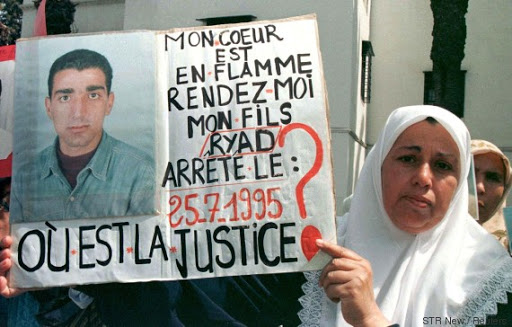 MON.COEUR
EST
EN.FLAMME
RENDEZ.MOI
MON.FILS
RYAD
ARRETE.LE:
25.7.1995?
OÙ.EST.LA.JUSTICE!
STR New / Reuters